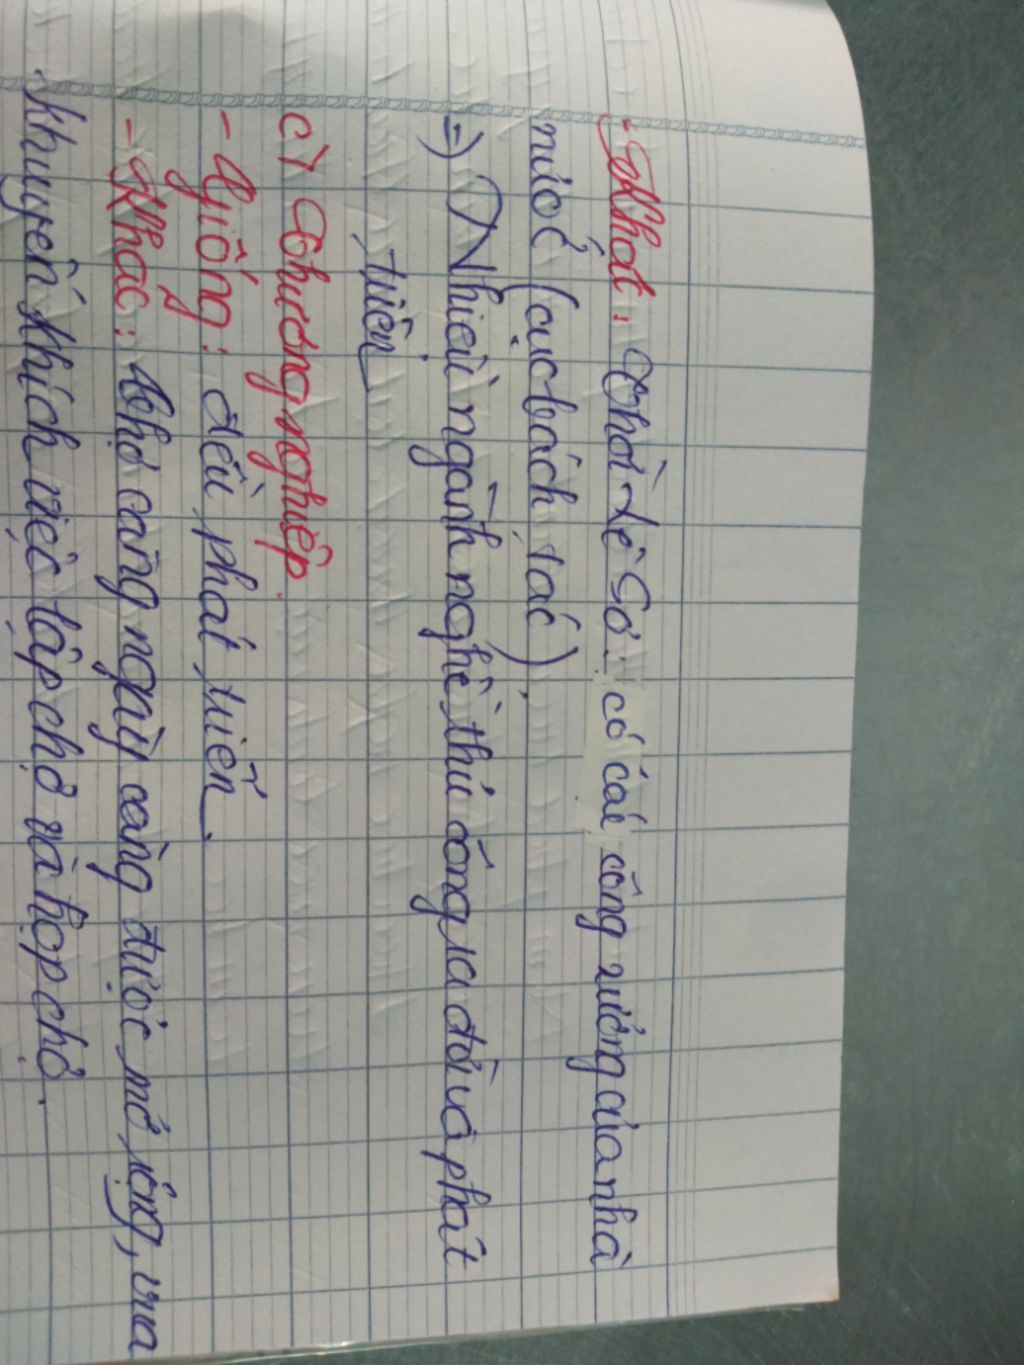 - Khác: Thời Lê Sơ: có các công xưởng của nhà
nước (cục bách tác).
=) Nhiều ngành nghề thủ công ra đời và phát
triển.
c) Thương nghiệp.
- Giống: đều phát triển.
- Khác: Chợ càng ngày càng được mở rộng, vua
khuyến khích việc lập chợ và họp chợ.